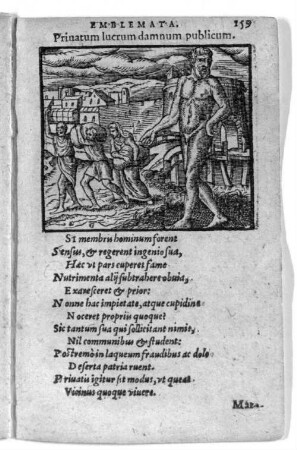 EMBLEMATA. 159
Priuatum lucrum damnum publicum.
SI membris hominum forent
Sensus, & regerent ingenio sua,
Hæc vt pars cuperet fame
Nutrimenta alij subtrahere obuia,
Exaresceret & prior:
Nonne hac impietate, atque cupidine
Noceret propriis quoque?
Sic tantum sua qui sollicitant nimis,
Nil communibus & student:
Postremò in laqueum fraudibus ac dolo
Deserta patria ruent.
Priuatis igitur sit modus, vt queat
Vicinus quoque viuere.